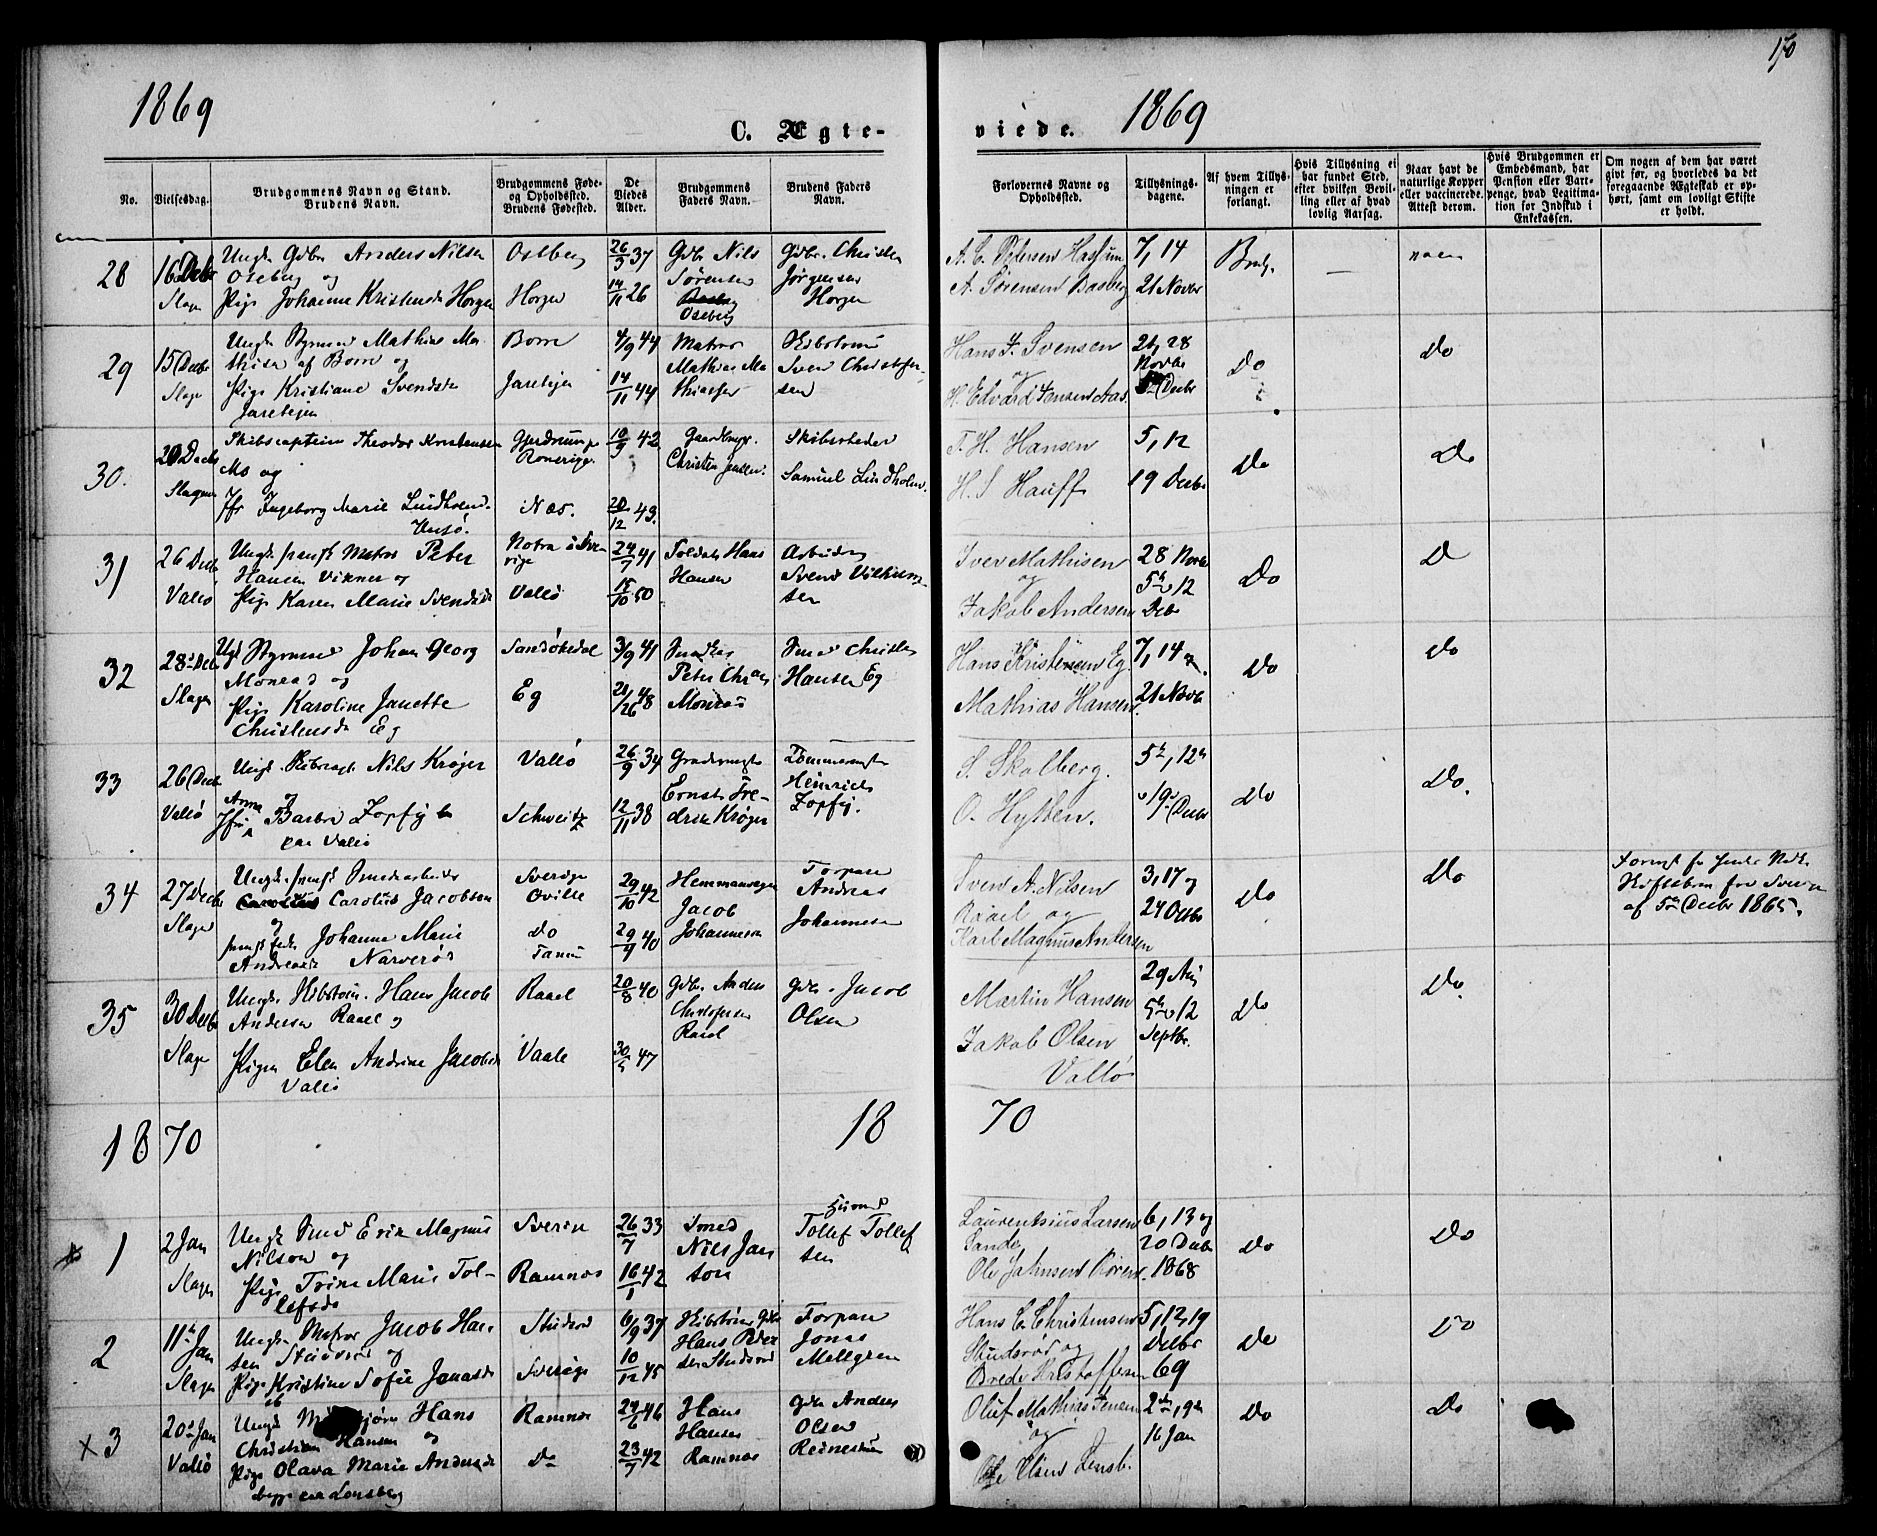 170
1869
C. Ægte-
viede.
1869
No.
Vielsesdag.
Brudgommens Navn og Stand.
Brudens Navn.
Brudgommens Føde-
og Opholdssted.
Brudens Fødested.
De
Viedes
Alder.
Brudgommens
Faders Navn.
Brudens Faders
Navn.
Forlovernes Navne og
Opholdssted.
Tillysnings-
dagene.
Af hvem Tillys-
ningen er
forlangt.
Hvis Tillysning ei
har fundet Sted,
efter hvilken Bevil-
ling eller af hvad
lovlig Aarsag.
Naar havt de
naturlige Kopper
eller vaccinerede.
Attest derom.
Hvis Brudgommen er
Embedsmand, har
Pension eller Vart-
penge, hvad Legitima-
tion for Indskud i
Enkekassen.
Om nogen af dem har været
givt før, og hvorledes da det
foregaaende Ægteskab er op-
hørt, samt om lovligt Skifte
er holdt.
28
16 Decbr
Slagen
Ungk. Gdbr Anders Nilsen
Oseberg og
Pige Johanne Kristensd Horgen
Oseberg
Horgen
26/3 37
14/11 26
Gdbr Nils
Sørensen
Oseberg
Gdbr. Christen
Jørgensen
Horgen
A. C. Pedersen Hassum
A. Sørensen Basberg
7, 14
21 Novbr
Brudg.
—
29
15 Decbr
Slagen
Ungk Styrmand Mathias Ma
thisen af Borre og
Pige Kristiane Svendsd
Jaretejen
Borre
Jaretejen
4/9 44
14/11 44
Matros
Mathias Ma
thiassen
Sven Christoffer-
sen
Hans J. Svensen
og
H. Edvard Jensen Aas.
21, 28
Novbr
5 Decbr
Do
Do
30.
20 Decbr
Slagen
Skibscaptein Theodor Kristensen
Mo og
Jfr Ingeborg Marie Lindholm
Næs.
10/9 42
20/12 43
Gaardbrgr.
Christen Jensen.
Skibsrheder
Samuel Lindholm.
T. H. Hansen
H. S Hauff
5, 12
19 Decbr
Do
Do
31
26 Decbr
Vallø
Ungk. svensk Matros Peter
Hansen Vikner og
Pige Karen Marie Svendsd
Vallø
24/7 41
15/10 50
Soldat Hans
Hansen
Arbeider
Svend Vilhelm-
sen
Iver Mathisen
og
Jakob Andersen
28 Novbr
5te 12
Debr
Do
D
32
28 Decbr
Slagen
Ungk Styrmand Johan Georg
Monrad og
Pige Karoline Janette
Christensd Eg
Sandøkedal
Eg
3/9 41
21/26 48
Peter Chr
Monrad
Smed Christen
Hansen Eg
Hans Kristensen Eg
Mathias Hansen
7, 14 og
21 Novbr
Do
Do
33
26 Decbr
Vallø
Ungk. Nils Krøjer
og
Jfr Anna Barbra Zopfy
paa Vallø
Vallø
Schweitz
26/9 34
12/11 38
Ernst Fre-
drik Krøjer
Heinrich
Zopfy.
S. Skolberg.
O. Hytten.
5te, 12te
19 Decbr
Do
Do.
34
27 Decbr
Slagen
Ungk. svensk Smedarbeider
Carolus Jacobson
og
Johanne Marie
Andreasd Narverød
Sverige
Oville
do
Tanum
29/10 42
29/9 40
Jacob
Johannesson
Torpare
Andreas
Johannesen
Sven A. Nilsen
Rael og
Karl Magnus Andersen
3, 17 og
24 Octbr
Do
Do
af 5te Decbr 1865.
35
30 Decbr
Slagen
Ungk. Hans Jacob
Andersen Rael og
Pigen Elen Andrine Jacobsd
Vallø
Rael
Vaale
20/8 40
30/5 47
Gdbr. Anders
Christofersen
Rael
Gdbr. Jacob
Olsen
Martin Hansen
Jakob Olsen
Vallø
29 Aug
5te 12
Septbr.
Do
Do.
1870
18
70
1
2 Jan
Slagen
Ungk Smed Erik Magnus
Nilson og
Pige Trine Marie Tol-
lefsd
Ramnæs
26/7 33
16/1 42
Smed
Nils Jan
son
Tollef Tollef
sen
Laurentsius Larsen
Sande
Ole Johnsen
6, 13 og
20 Decbr
1868
Do
Do
2
11te Jan
Slagen
Ungk. Matros Jacob Han
sen og
Pige Kristine Sofie Jonasd
Sverige
6/9 37
10/12 45
Hans Peder
sen
Torpare
Jonas
Mellgren
Hans C. Christensen
og
Brede Kristoffersen
5, 12, 19
Decbr
69
Do
Do
x 3
20 Jan
Vallø
Ungk Hans
Christian Hansen og
Pige Olava Marie Andersd
begge paa Tønsberg
Ramnæs
Do
24/6 46
23/7 42
Hans
Hansen
Ramnæs
Gdbr Anders
Olsen
Oluf Mathias Jensen
og
Ole Olsen Tønsb.
2den, 9de
16 Jan
Do
Do